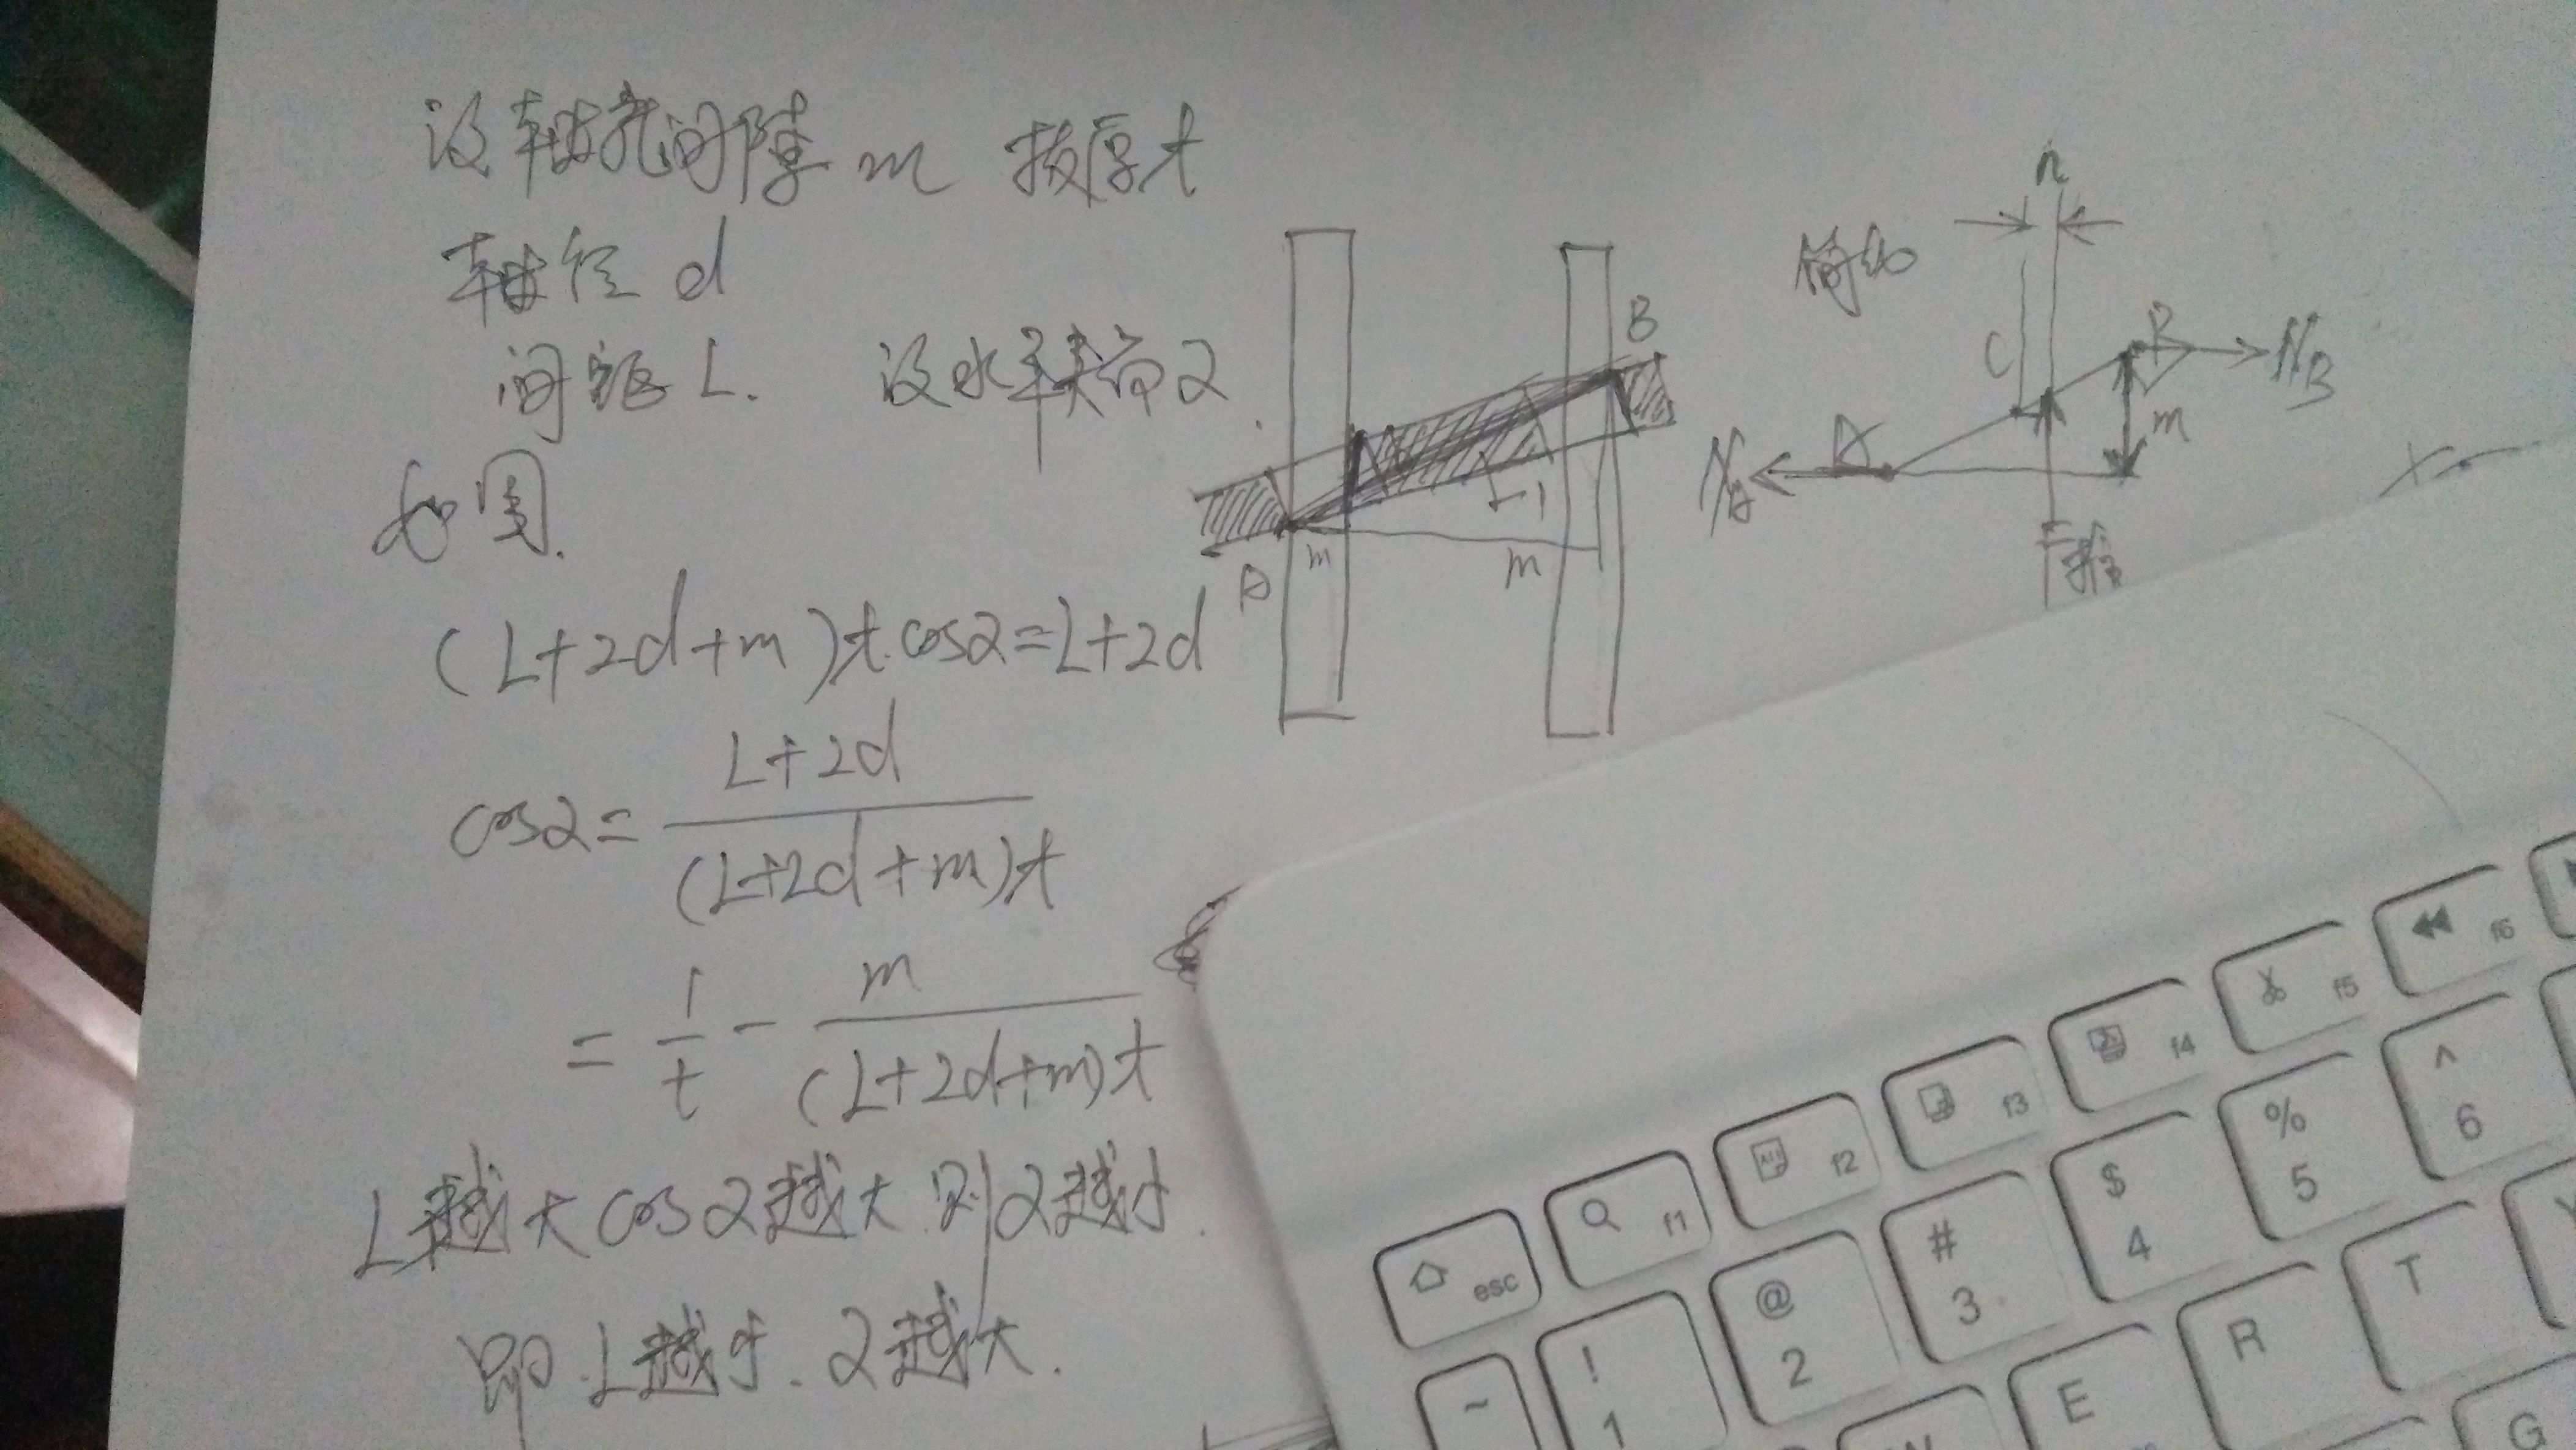 设轴孔间隙 m 板厚 t
轴径 d
间距 L. 设水平夹角 α
如图.
(L+2d+m)t·cosα=L+2d
cosα= L+2d / (L+2d+m)t
= 1/t - m / (L+2d+m)t
L越大 cosα越大 则α越小.
即 L越小. α越大.
B
A
m
m
简化
n
C
B
N_B
m
A
N_A
esc
f1
f2
f3
f4
f5
f6
~
! 1
@ 2
# 3
$ 4
% 5
^ 6
E
R
T
G